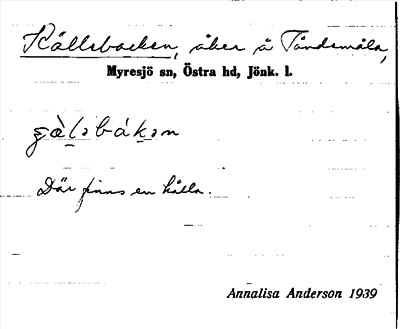 Källebacken, åker å Tändemåla,
Myresjö sn, Östra hd, Jönk. l.
Där finns en källa.
Annalisa Anderson 1939